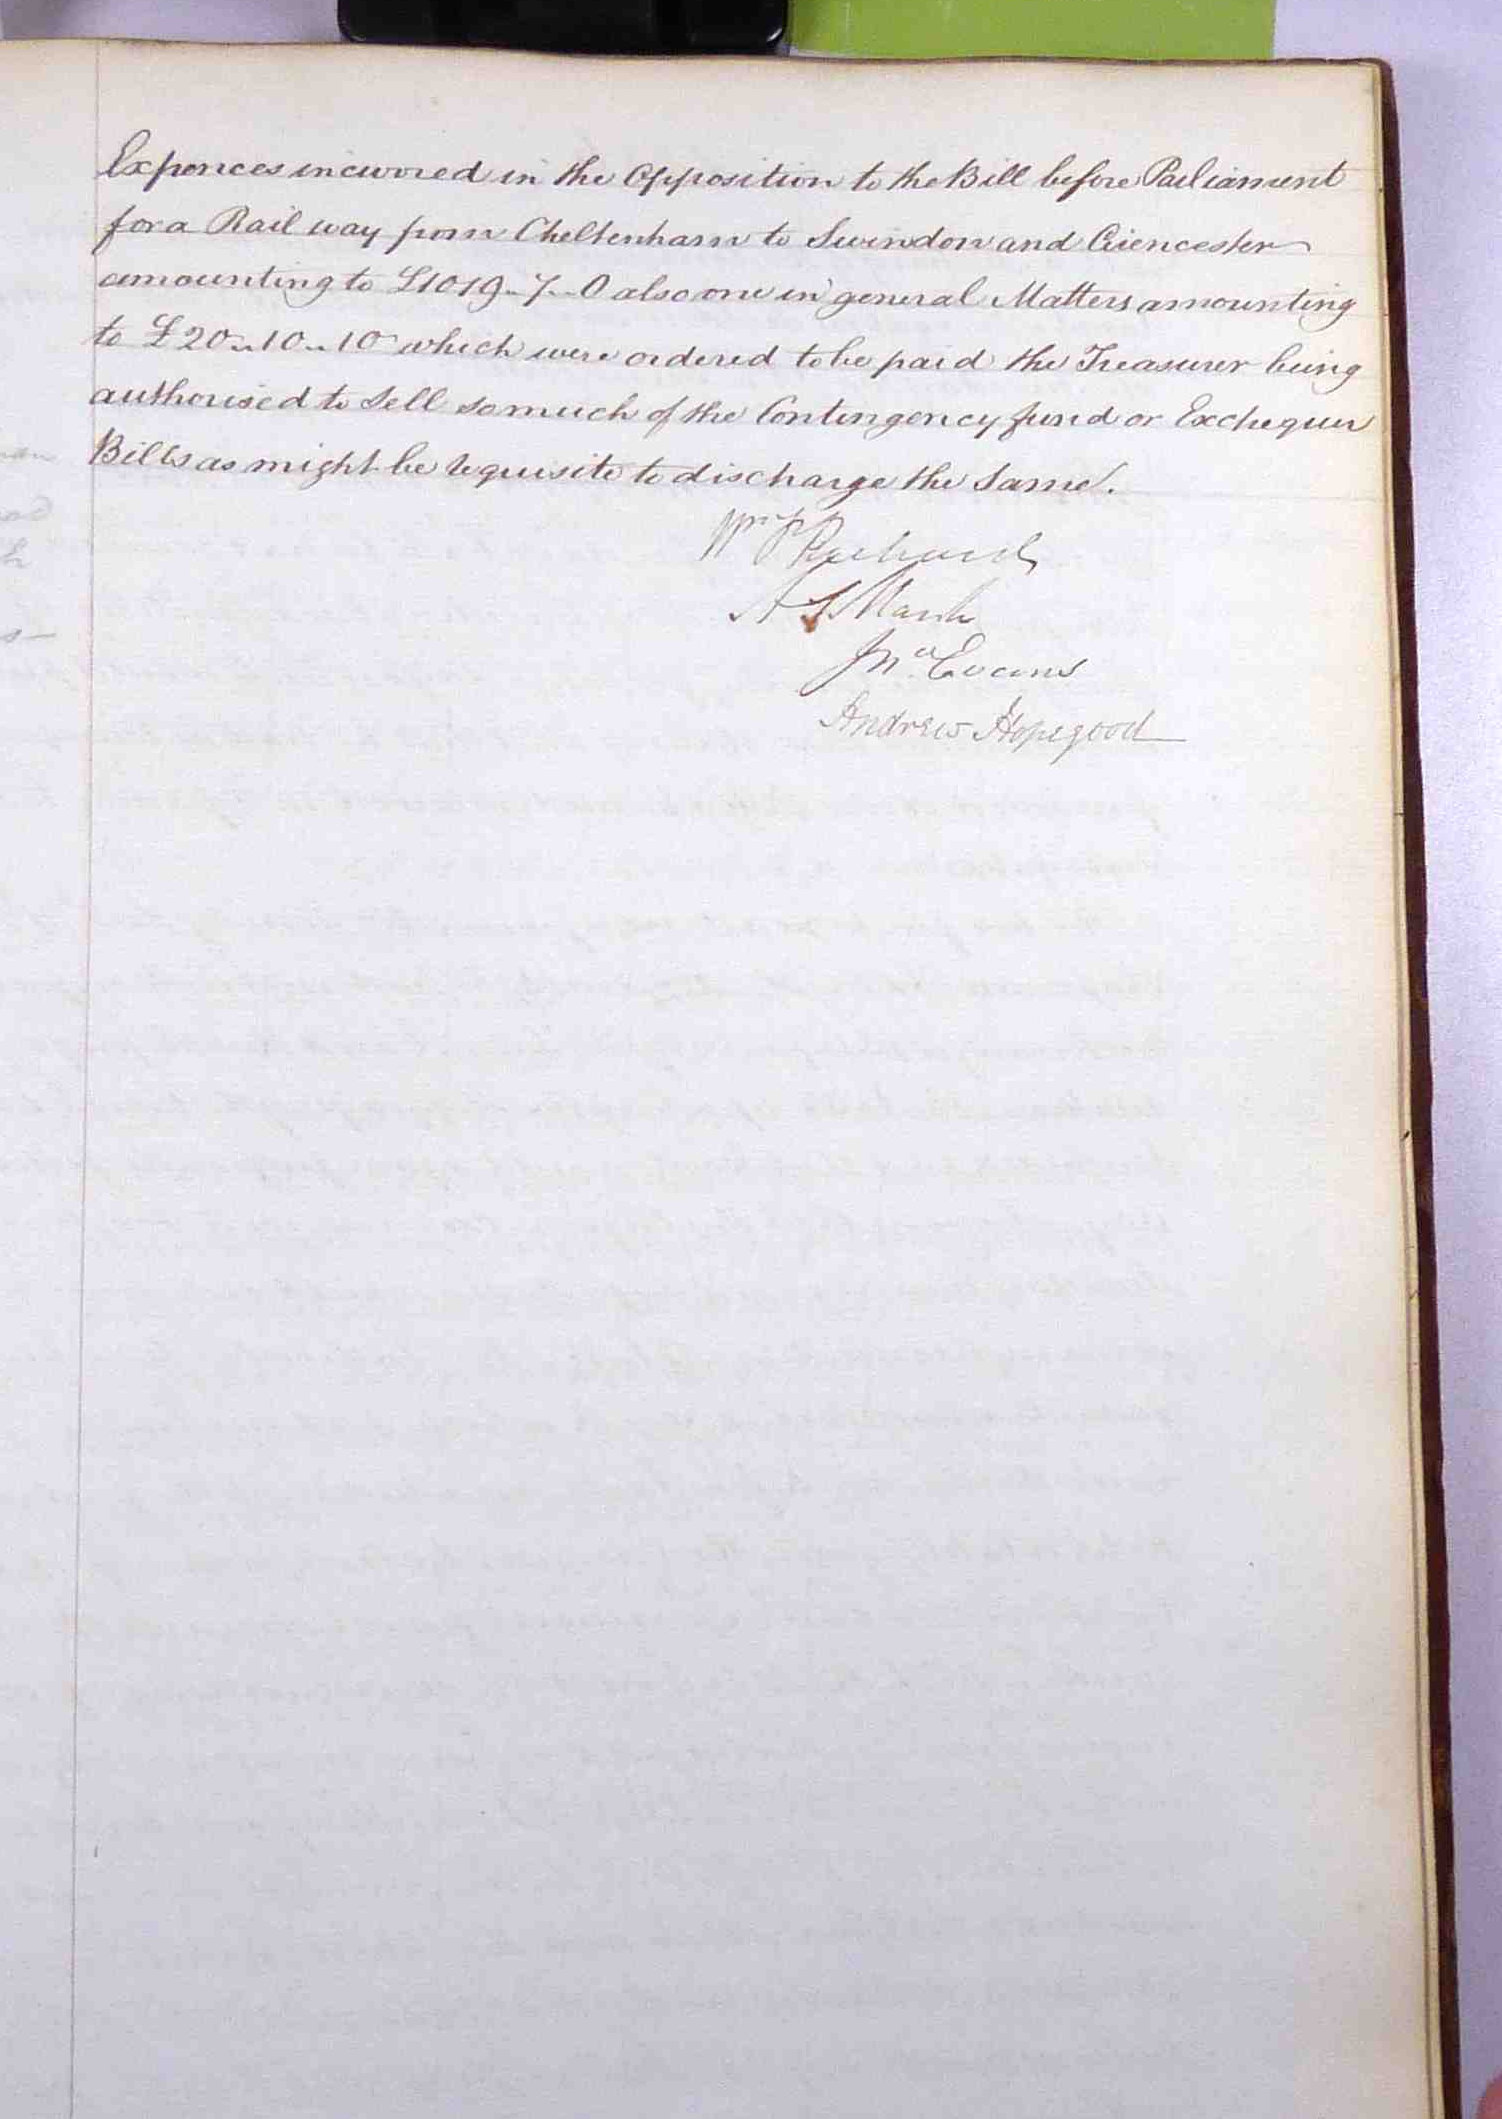 Expences incurred in the Opposition to the Bill before Parliament
for a Rail way from Cheltenham to Swindon and Cirencester
amounting to £1019..7..0 also one in general Matters amounting
to £20..10..10 which were ordered to be paid the Treasurer being
authorised to Sell so much of the Contingency fund or Exchequer
Bills as might be requisite to discharge the Same.
Wm
A
Jno. Evans
Andrew Hopegood